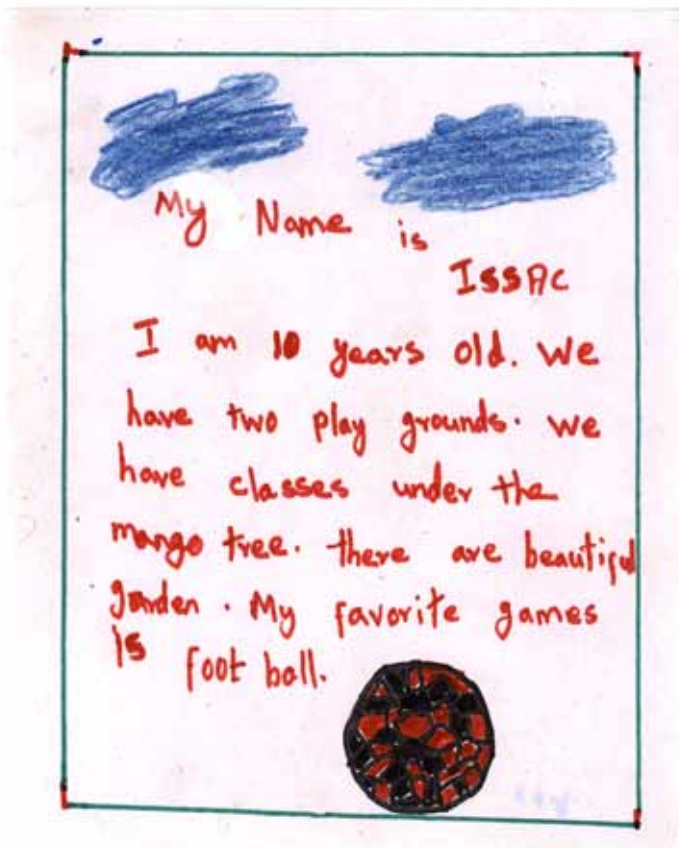 My Name is
ISSAC
I am 10 years old. We
have two play grounds. We
have classes under the
mango tree. there are beautiful
garden. My favorite games
is foot ball.